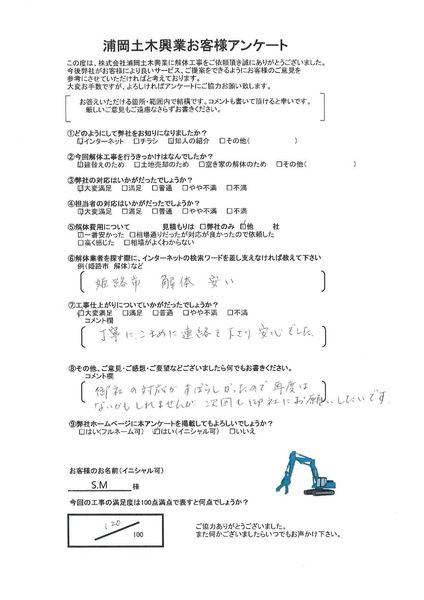 浦岡土木興業お客様アンケート
この度は、株式会社浦岡土木興業に解体工事をご依頼頂き誠にありがとうございました。
今後弊社がお客様により良いサービス、ご提案をできるようにお客様のご意見を
参考にさせていただければと考えております。
大変お手数ですが、よろしければアンケートにご協力お願い致します。
お答えいただける箇所・範囲内で結構です。コメントも書いて頂けると幸いです。
厳しいご意見もご遠慮なさらずお書きください。
①どのようにして弊社をお知りになりましたか？
☑インターネット □チラシ ☑知人の紹介 □その他( )
②今回解体工事を行うきっかけはなんでしたか？
☑建替えのため □土地売却のため □空き家の解体のため □その他( )
③弊社の対応はいかがだったでしょうか？
☑大変満足 □満足 □普通 □やや不満 □不満
④担当者の対応はいかがだったでしょうか？
☑大変満足 □満足 □普通 □やや不満 □不満
⑤解体費用について 見積もりは □弊社のみ ☑他 社
☑一番安かった □相場通りだったが対応が良かったので依頼した
□高く感じた □相場がよくわからない
⑥解体業者を探す際に、インターネットの検索ワードを差し支えなければ教えて下さい
例(姫路市 解体)など
姫路市 解体 安い
⑦工事仕上がりについていかがだったでしょうか？
☑大変満足 □満足 □普通 □やや不満 □不満
コメント欄
丁寧に、こまめに連絡を下さり安心でした。
⑧その他、ご意見・ご感想・ご要望などございましたら何でもお書きください。
コメント欄
御社の対応がすばらしかったので再度は
ないかもしれませんが 次回も御社にお願いしたいです。
⑨弊社ホームページに本アンケートを掲載してもよろしいでしょうか？
□はい(フルネーム可) ☑はい(イニシャル可) □いいえ
お客様のお名前(イニシャル可)
S.M 様
今回の工事の満足度は100点満点で表すと何点でしょうか？
120
100
ご協力ありがとうございました。
また何かございましたらいつでもお声かけ下さい。